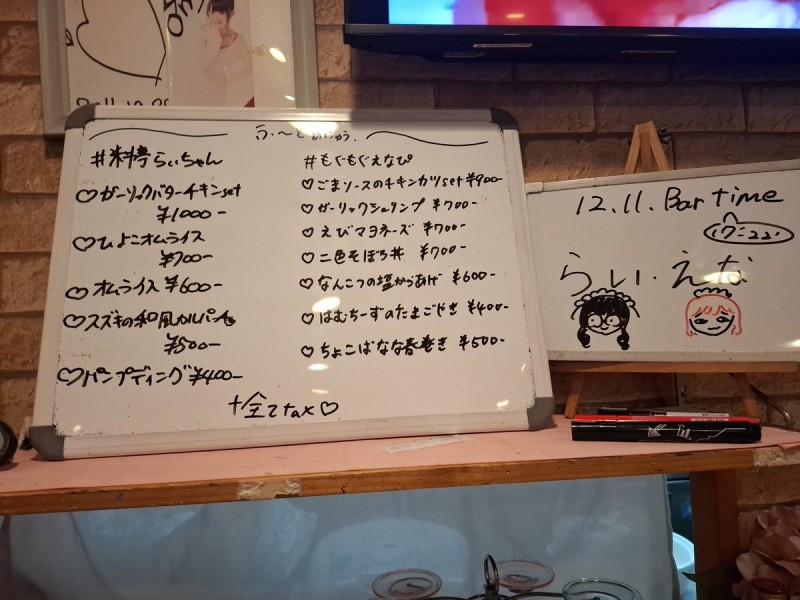 ふ〜どめにゅう
#料亭らぃちゃん
♡ガーリックバターチキンset
¥1000-
♡ひよこオムライス
¥700-
♡オムライス ¥600-
♡スズキの和風カルパッチョ
¥500-
♡パンプディング ¥400-
#もぐもぐえなぴ
♡ごまソースのチキンカツset ¥900-
♡ガーリックシュリンプ ¥700-
♡えびマヨネーズ ¥700-
♡二色そぼろ丼 ¥700-
♡なんこつの塩からあげ ¥600-
♡はむちーずのたまごやき ¥400-
♡ちょこばなな春巻き ¥500-
+全てtax♡
12.11. Bar time
17:-22:
らぃ・えな